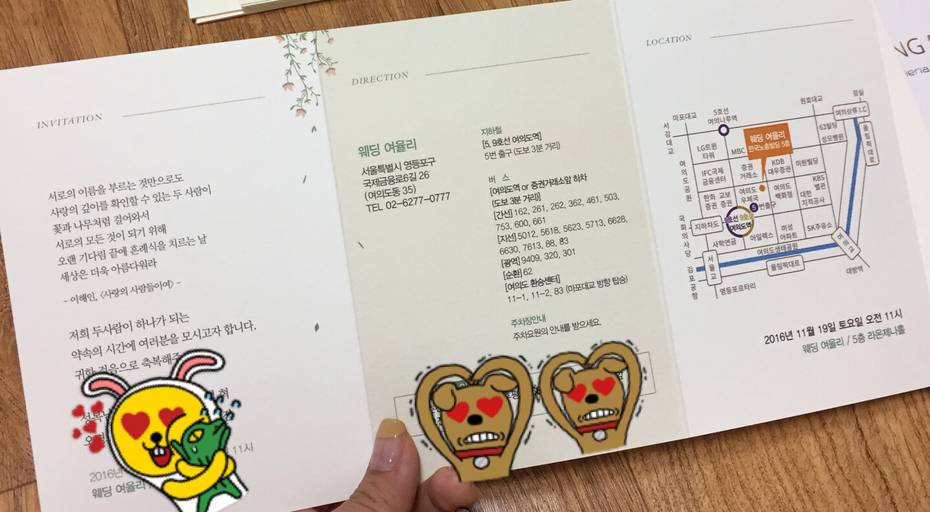 INVITATION
서로의 이름을 부르는 것만으로도
사랑의 깊이를 확인할 수 있는 두 사람이
꽃과 나무처럼 걸어와서
서로의 모든 것이 되기 위해
오랜 기다림 끝에 혼례식을 치르는 날
세상은 더욱 아름다워라
- 이해인, 〈사랑의 사람들이여〉 -
저희 두사람이 하나가 되는
약속의 시간에 여러분을 모시고자 합니다.
귀한 걸음으로 축복해주
2016년
11시
웨딩 여율리
DIRECTION
웨딩 여율리
서울특별시 영등포구
국제금융로6길 26
(여의도동 35)
TEL 02-6277-0777
지하철
[5, 9호선 여의도역]
5번 출구 (도보 3분 거리)
버 스
[여의도역 or 증권거래소앞 하차
(도보 3분 거리)]
[간선] 162, 261, 262, 362, 461, 503,
753, 600, 661
[지선] 5012, 5618, 5623, 5713, 6628,
6630, 7613, 88, 83
[광역] 9409, 320, 301
[순환] 62
[여의도 환승센터]
11-1, 11-2, 83 (마포대교 방향 탑승)
주차장안내
주차요원의 안내를 받으세요.
LOCATION
마포대교
5호선
여의나루역
원효대교
잠실
여의상류 I.C
서강대교
63빌딩
성모병원
올림픽대로
LG트윈
타워
MBC
웨딩 여율리
한국노총빌딩 5층
여의도공원
IFC국제
금융센터
증권
거래소
KDB
대우증권
미원빌딩
한화
증권
교보
증권
여의도
우체국
여의도
백화점
대한
지적공사
KBS
별관
국회의사당
지하차도
5호선 9호선
여의도역
5번출구
사학연금
아일렉스
미성
아파트
SK주유소
여의도생태공원
서울교
올림픽대로
대방역
김포공항
영등포로터리
2016년 11월 19일 토요일 오전 11시
웨딩 여율리 / 5층 라온제나홀